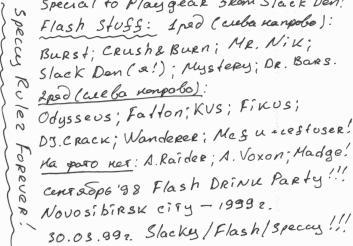 Special to Playgear from Slack Den!
Flash Stuff: 1ряд (слева направо):
Burst; Crush&Burn; Mr. Nik;
Slack Den (я!); Mystery; Dr. Bars.
2ряд (слева направо):
Odysseus; Fatton; KVS; Fikus;
DJ.Crack; Wanderer; Mcf и
На фото нет: A.Raider; A.Voxon; Madge!
сентябрь '98 Flash Drink Party!!!
Novosibirsk city – 1999г.
30.03.99г. Slacky/Flash/Speccy!!!
Speccy Rulez Forever!